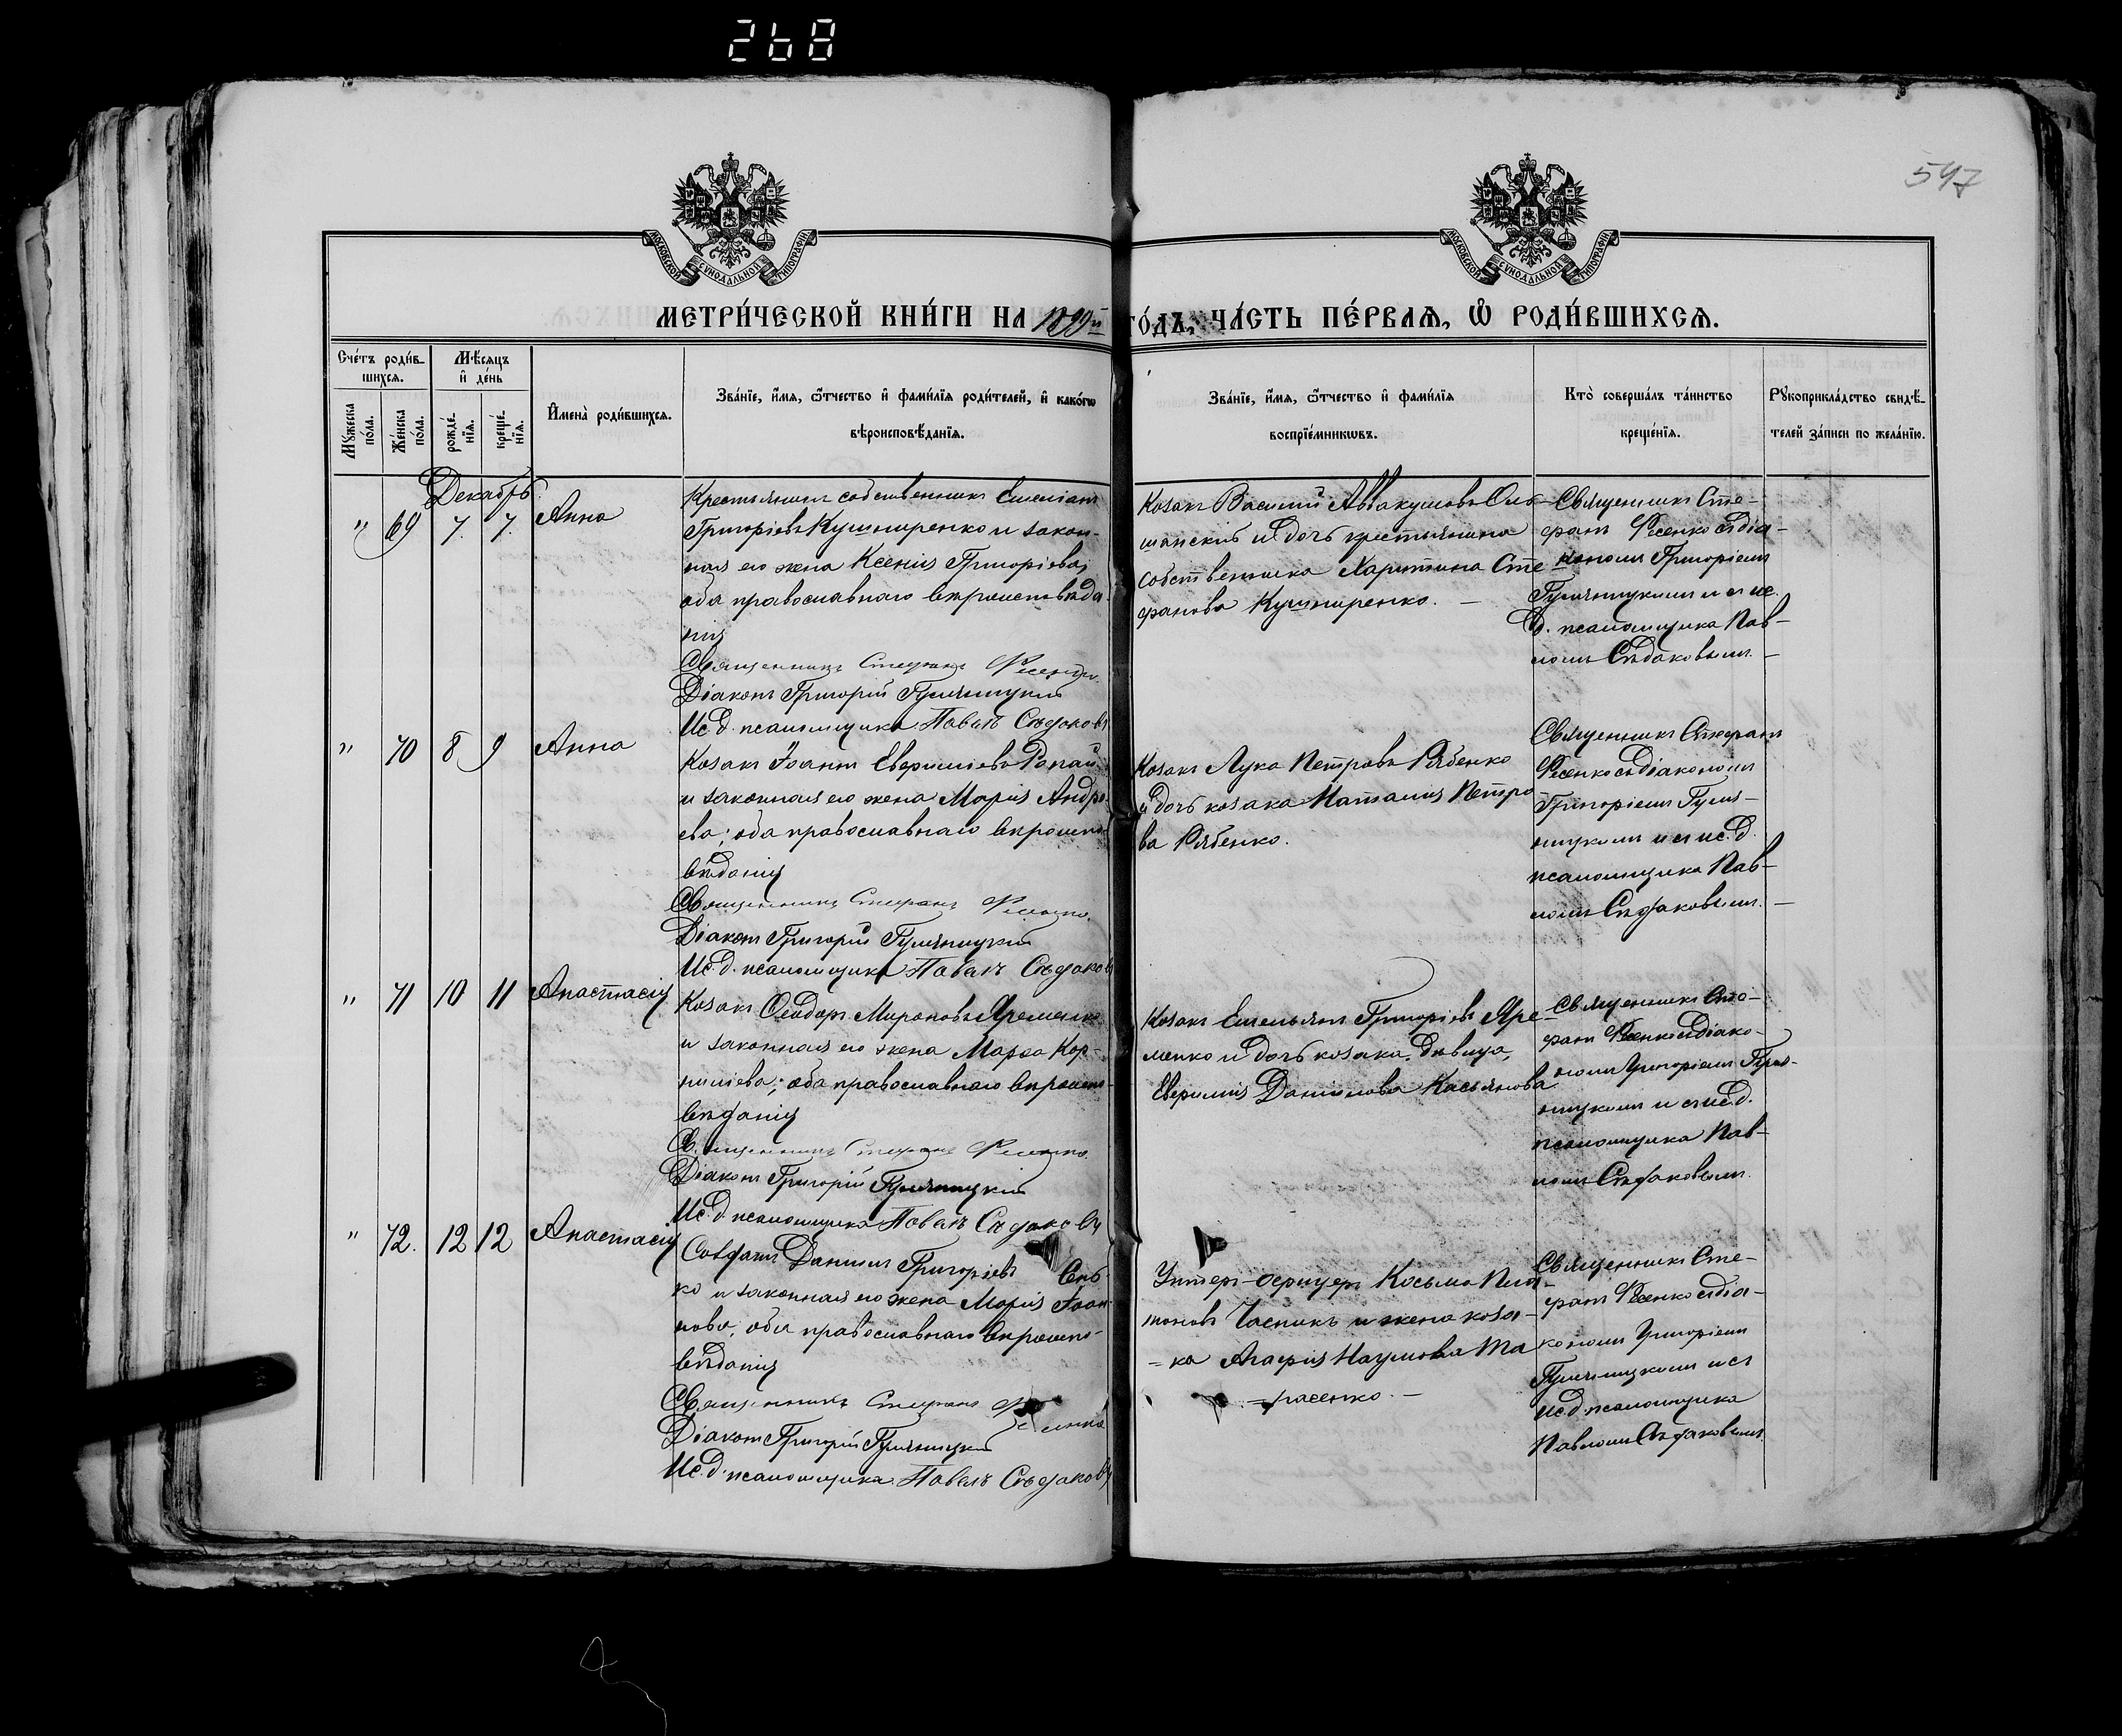 268
547
МОСКОВСКОЙ СѴНОДАЛЬНОЙ ТИПОГРАФІИ
МОСКОВСКОЙ СѴНОДАЛЬНОЙ ТИПОГРАФІИ
МЕТРИ́ЧЕСКОЙ КНИ́ГИ НА 1899й ГО́ДЪ, ЧА́СТЬ ПЕ́РВАѦ, Ѽ РОДИ́ВШИХСѦ.
Сче́тъ роди́в-
шихсѧ.
Мѣ́сѧцъ
и҆ де́нь
Мꙋ́жеска по́ла.
Же́нска по́ла.
рожде́-
нїѧ.
креще́-
нїѧ.
И҆мена̀ роди́вшихсѧ.
Зва́нїе, и҆́мѧ, ѻ҆́тчество и҆ фами́лїѧ роди́телей, и҆ како́гѡ
вѣроисповѣ́данїѧ.
Зва́нїе, и҆́мѧ, ѻ҆́тчество и҆ фами́лїѧ
воспрїе́мникѡвъ.
Кто̀ соверша́лъ та́инство
креще́нїѧ.
Рꙋкоприкла́дство свидѣ́-
телей за́писи по жела́нїю.
Декабрь
" 69 7. 7. Анна
Крестьянинъ собственникъ Емеліанъ
Григоріевъ Кушниренко и закон-
ная его жена Ксенія Григоріева,
оба православнаго вѣроисповѣда-
нія
Священникъ Стефанъ Фесенко.
Діаконъ Григорій
Ис. д. псаломщика Павелъ Сѣдаковъ
Козакъ Василій Аввакумовъ Оль-
шанскій и дочь крестьянина
собственника Харитина Сте-
фанова Кушниренко. —
Священникъ Сте-
фанъ Фесенко съ діа-
кономъ Григоріемъ
и съ ис.
д. псаломщика Пав-
ломъ Сѣдаковымъ. —
" 70 8 9 Анна
Козакъ Іоаннъ Евфиміевъ
и законная его жена Марія Андре-
ева; оба православнаго вѣроиспо-
вѣданія
Священникъ Стефанъ Фесенко.
Діаконъ Григорій
Ис. д. псаломщика Павелъ Сѣдаковъ
Козакъ Лука Петровъ Рябенко
и дочь козака Наталія Петро-
ва Рябенко.
Священникъ Стефанъ
Фесенко съ діакономъ
Григоріемъ
и съ ис. д.
псаломщика Пав-
ломъ Сѣдаковымъ. —
" 71 10 11 Анастасія
Козакъ Ѳеодоръ Мироновъ Яременко
и законная его жена Марѳа Кор-
ниліева; оба православнаго вѣроиспо-
вѣданія
Священникъ Стефанъ Фесенко.
Діаконъ Григорій
Ис. д. псаломщика Павелъ Сѣдаковъ
Козакъ Емельянъ Григоріевъ Яре-
менко и дочь козака, дѣвица,
Евфимія Даниилова Касьянова
Священникъ Сте-
фанъ Фесенко съ діако-
номъ Григоріемъ
и съ ис. д.
псаломщика Пав-
ломъ Сѣдаковымъ.
" 72. 12 12 Анастасія
Солдатъ Даниилъ Григорьевъ Сень-
ко и законная его жена Марія Іоан-
нова; оба православнаго вѣроиспо-
вѣданія
Священникъ Стефанъ Фесенко
Діаконъ Григорій
Ис. д. псаломщика Павелъ Сѣдаковъ
Унтеръ-офицеръ Косьма Пла-
тоновъ Часникъ и жена коза-
-ка Агафія Наумова Та
=расенко. —
Священникъ Сте-
фанъ Фесенко съ діа-
кономъ Григоріемъ
и съ
ис. д. псаломщика
Павломъ Сѣдаковымъ.